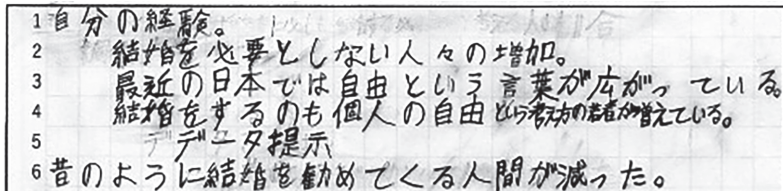 1 自分の経験。
2 結婚を必要としない人々の増加。
3 最近の日本では自由という言葉が広がっている。
4 結婚をするのも個人の自由という考え方の若者が増えている。
5 データ提示
6 昔のように結婚を勧めてくる人間が減った。